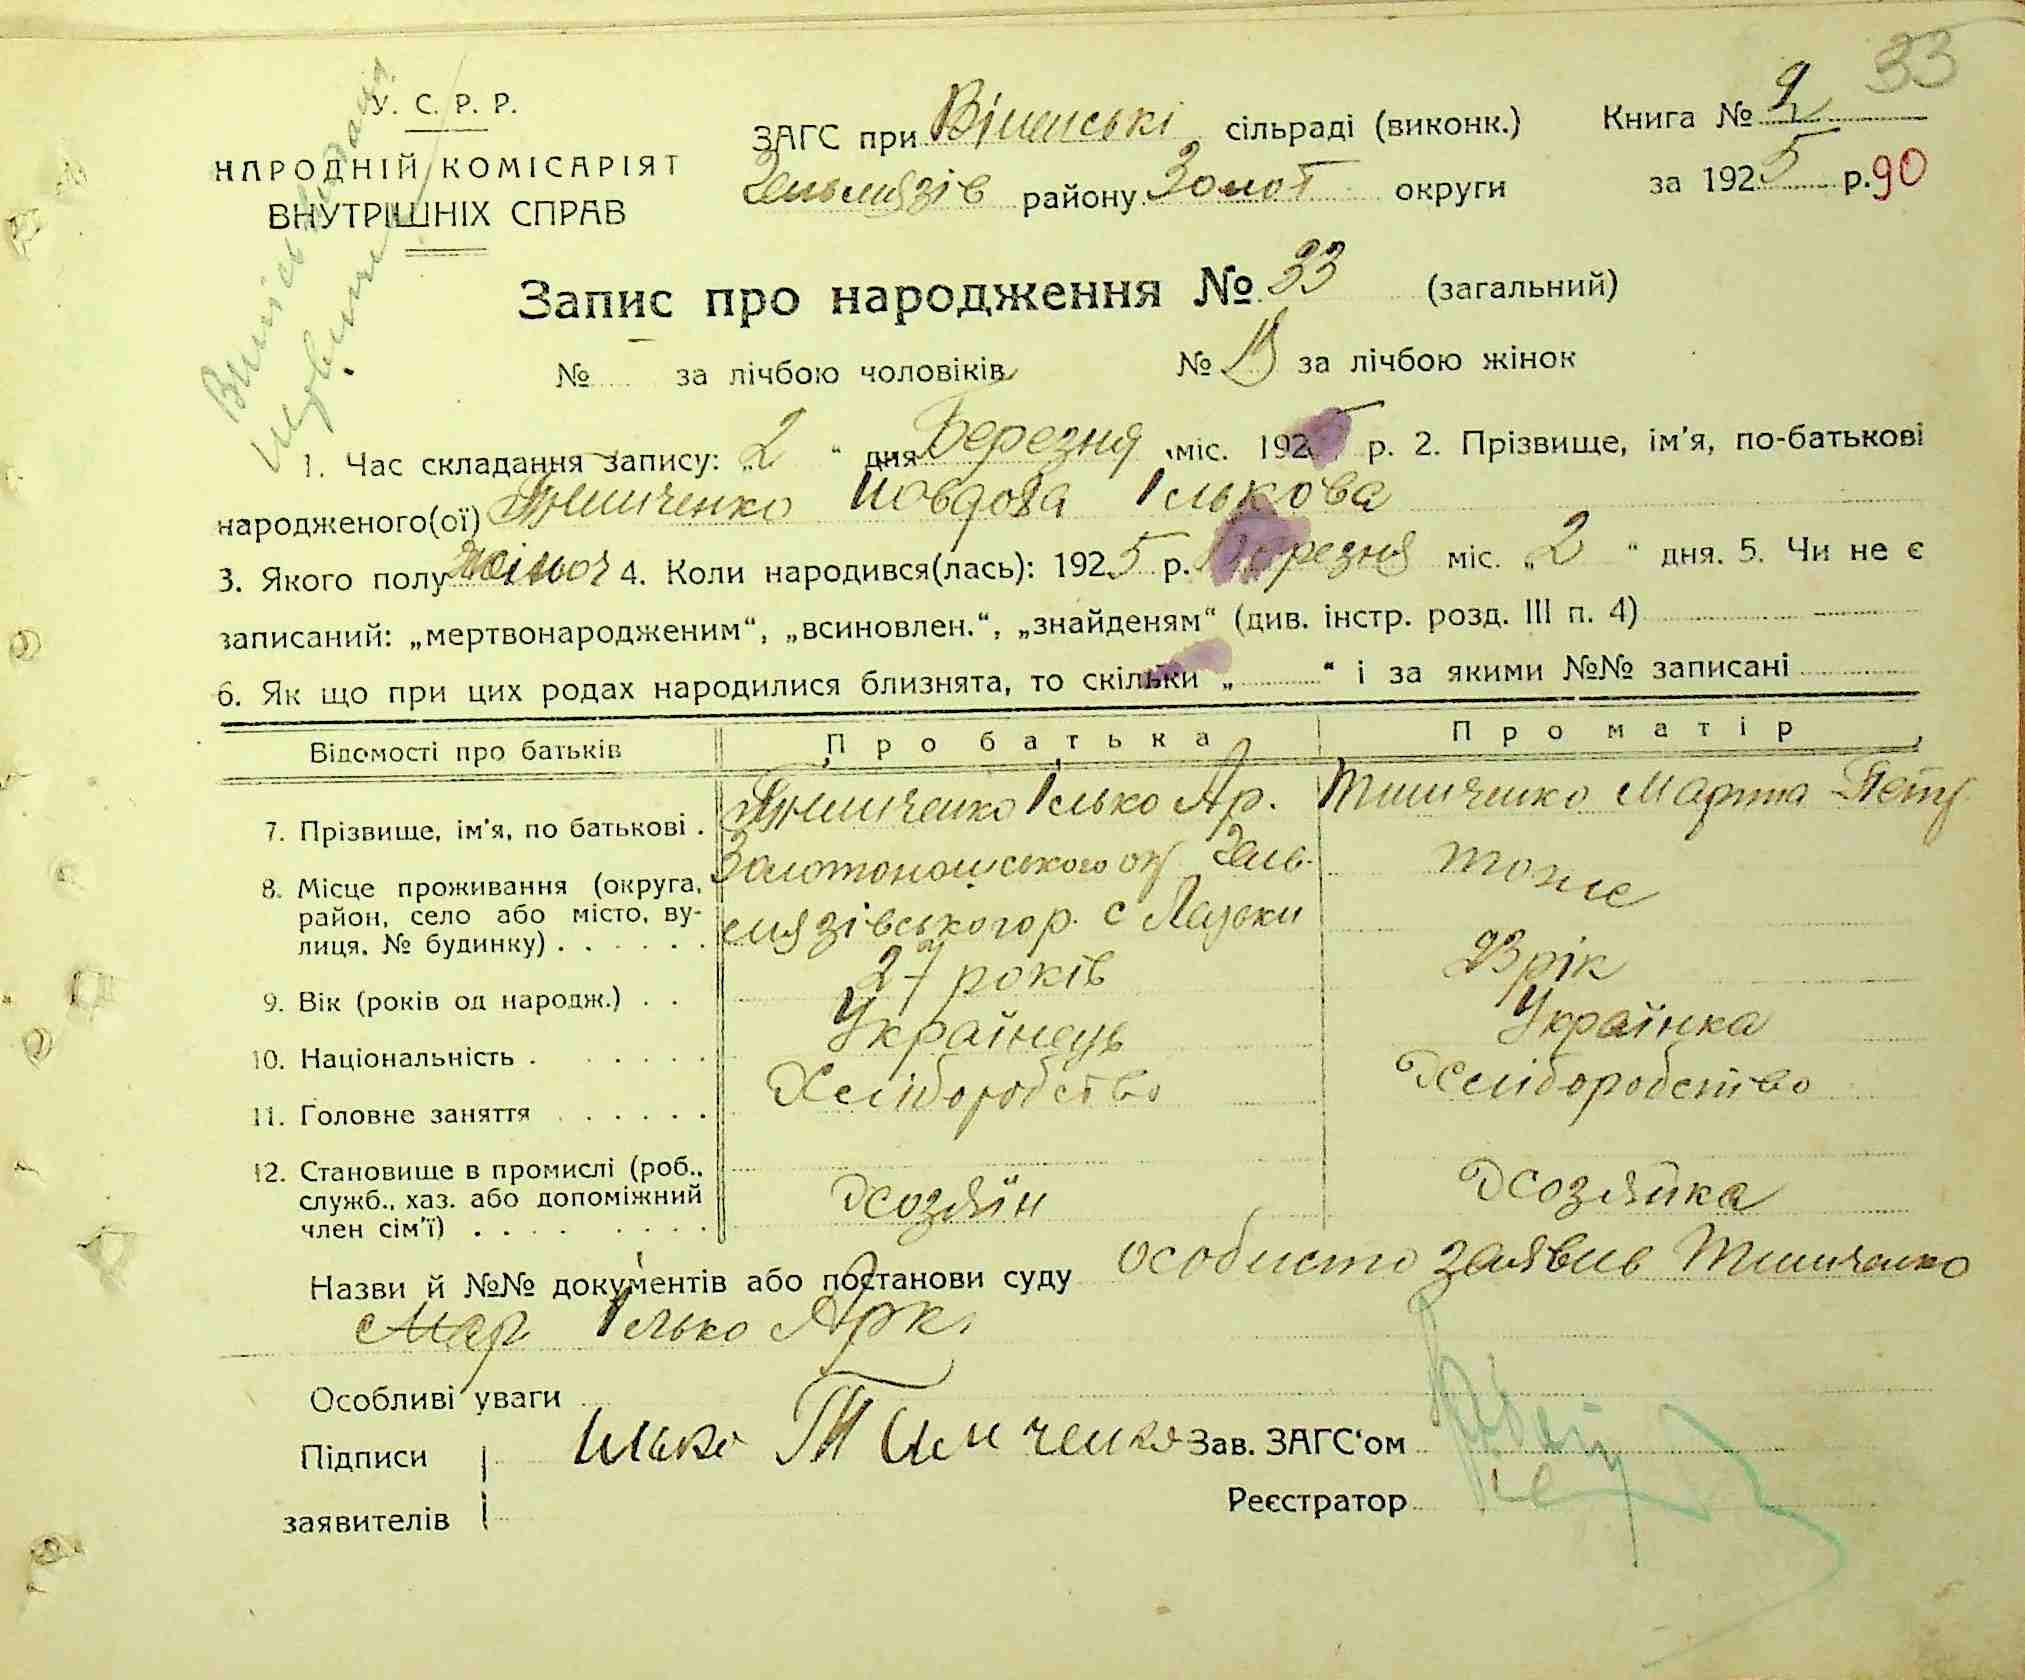 33
У. С. Р. Р.
НАРОДНІЙ КОМІСАРІЯТ
ВНУТРІШНІХ СПРАВ
ЗАГС при сільраді (виконк.) Книга № 2
Гельмязів району Золот округи за 1925 р. 90
Запис про народження № 33 (загальний)
№ - за лічбою чоловіків № за лічбою жінок
1. Час складання запису: „2“ дня Березня міс. 1925 р. 2. Прізвище, ім'я, по-батькові
народженого(ої) Тимченко Ількова
3. Якого полу жіноч 4. Коли народився(лась): 1925 р. Березня міс. „2“ дня. 5. Чи не є
записаний: „мертвонародженим“, „всиновлен.“, „знайденям“ (див. інстр. розд. III п. 4)
6. Як що при цих родах народилися близнята, то скільки „ “ і за якими №№ записані
Відомості про батьків Про батька Про матір
7. Прізвище, ім'я, по батькові . Тимченко Ілько Ар. Тимченко Марта Петр
8. Місце проживання (округа, Золотоношського ок Гель- тоже
район, село або місто, ву- мязівського р. с
лиця, № будинку) . . . . . .
9. Вік (років од народж.) . . 27 років 23 рік
10. Національність . . . . . . Українець Українка
11. Головне заняття . . . . . . Хліборобство Хліборобство
12. Становище в промислі (роб.,
служб., хаз. або допоміжний Хозяїн Хозяйка
член сім'ї) . . . . . . . .
Назви й №№ документів або постанови суду особисто заявив Тимченко
Мар Ілько Арк.
Особливі уваги
Підписи Илько Тимченко Зав. ЗАГС'ом
заявителів Реєстратор